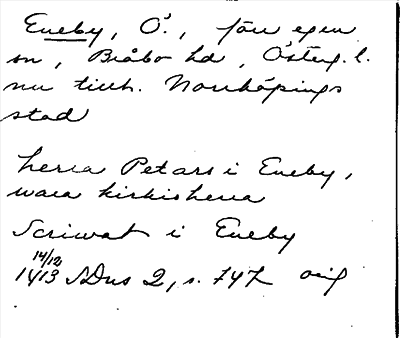 Eneby, Ö., förr egen
sn, Bråbo hd, Österg. l.
nu tillh. Norrköpings
stad
herra Petars i Eneby,
wara kirkioherra
Scriwat i Eneby
14/12
1413 SDns 2, s. 747 orig